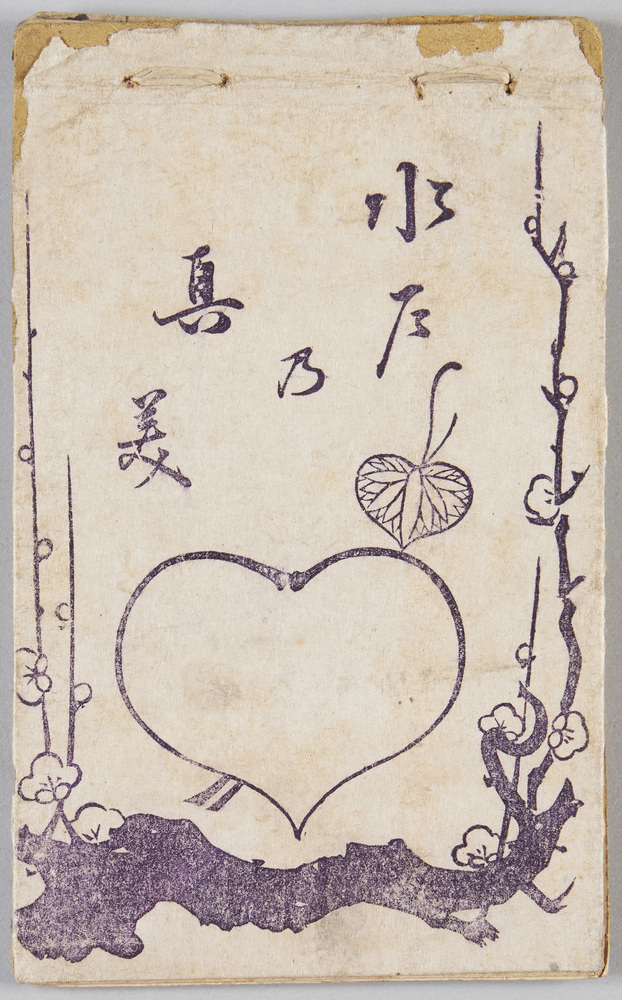 水戸
乃
真美